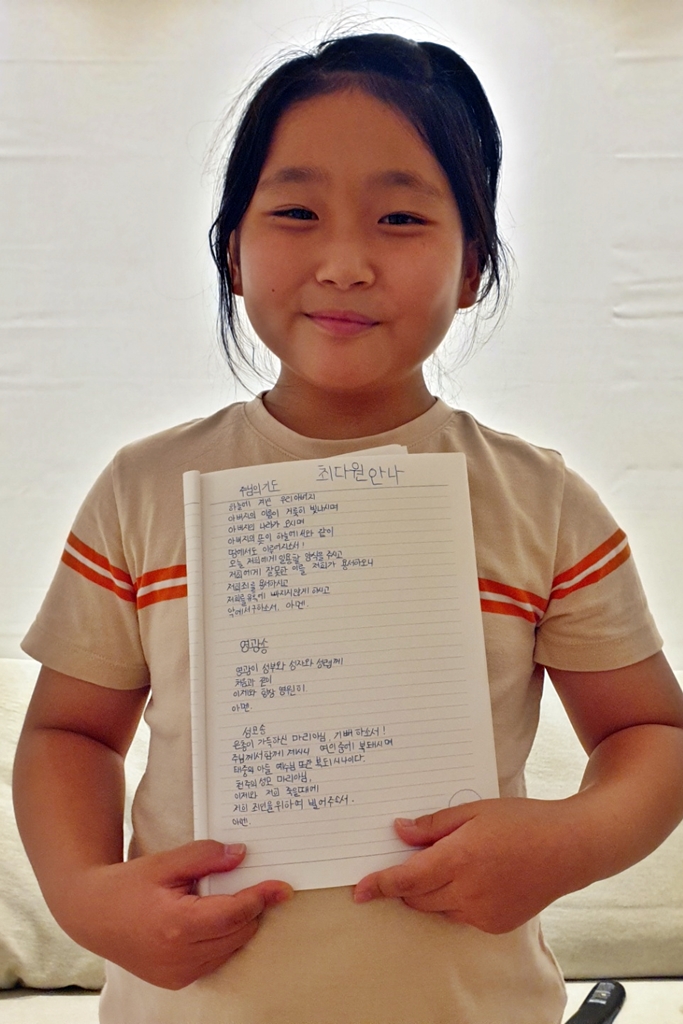 주님의기도 최다원안나
하늘에 계신 우리아버지
아버지의 이름이 거룩히 빛나시며
아버지의 나라가 오시며
아버지의 뜻이 하늘에서와 같이
땅에서도 이루어지소서!
오늘 저희에게 일용할 양식을 주시고
저희에게 잘못한 이를 저희가 용서하오니
저희죄를 용서하시고
저희를유혹에 빠지지않게 하시고
악에서구하소서. 아멘.
영광송
영광이 성부와 성자와 성령께
처음과 같이
이제와 항상 영원히
아멘.
성모송
은총이 가득하신 마리아님, 기뻐하소서!
주님께서함께 계시니 여인중에 복되시며
태중의 아들 예수님 또한 복되시나이다.
천주의성모 마리아님,
이제와 저희 죽을때에
저희 죄인을위하여 빌어주소서.
아멘.